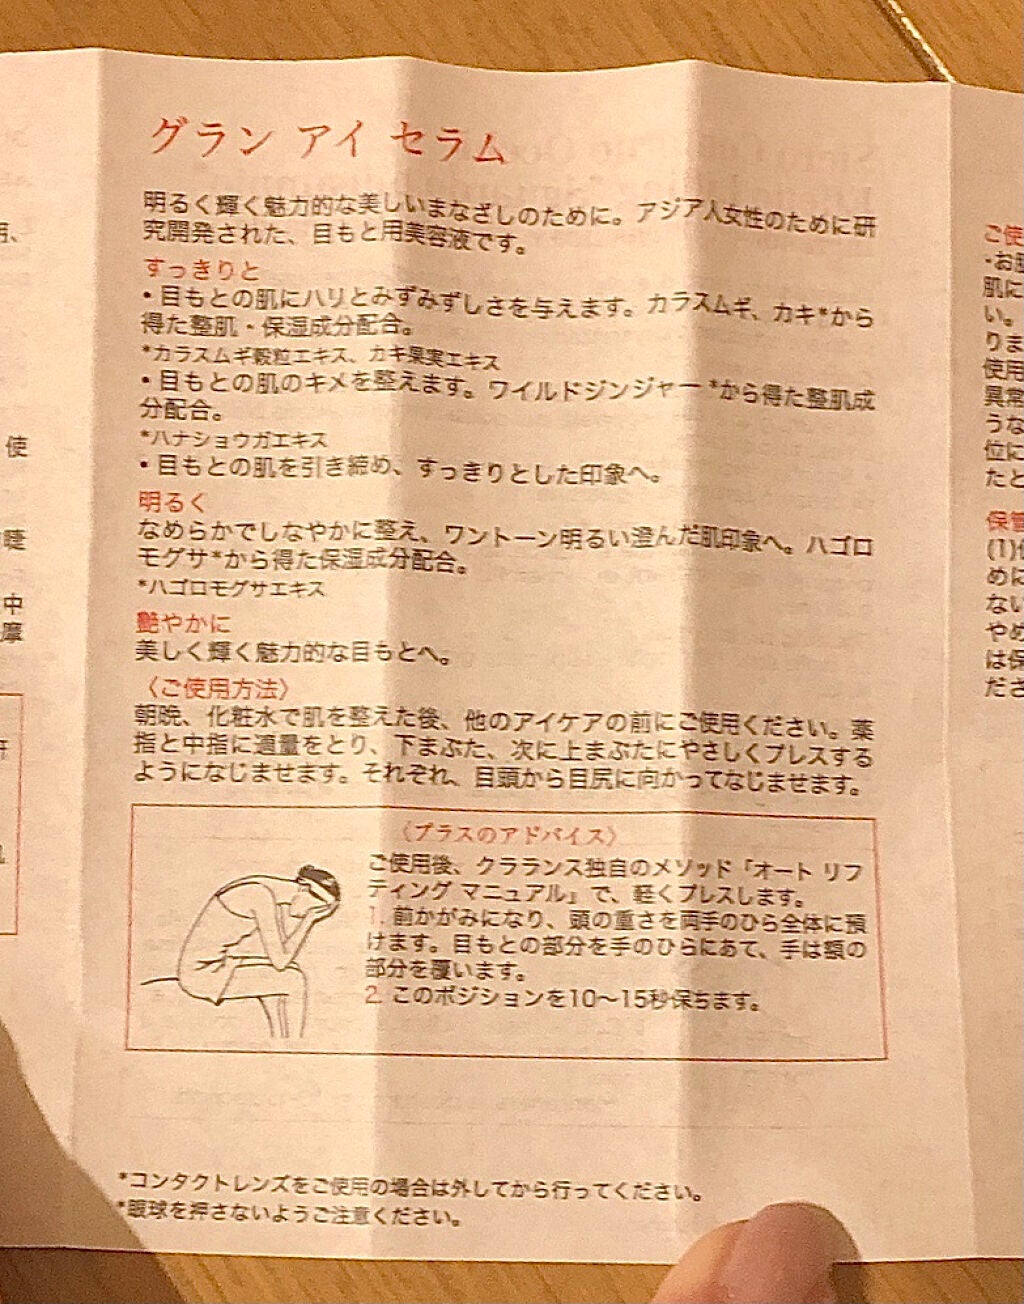 グラン アイ セラム
明るく輝く魅力的な美しいまなざしのために。アジア人女性のために研
究開発された、目もと用美容液です。
すっきりと
・目もとの肌にハリとみずみずしさを与えます。カラスムギ、カキ*から
得た整肌・保湿成分配合。
*カラスムギ穀粒エキス、カキ果実エキス
・目もとの肌のキメを整えます。ワイルドジンジャー*から得た整肌成
分配合。
*ハナショウガエキス
・目もとの肌を引き締め、すっきりとした印象へ。
明るく
なめらかでしなやかに整え、ワントーン明るい澄んだ肌印象へ。ハゴロ
モグサ*から得た保湿成分配合。
*ハゴロモグサエキス
艶やかに
美しく輝く魅力的な目もとへ。
〈ご使用方法〉
朝晩、化粧水で肌を整えた後、他のアイケアの前にご使用ください。薬
指と中指に適量をとり、下まぶた、次に上まぶたにやさしくプレスする
ようになじませます。それぞれ、目頭から目尻に向かってなじませます。
〈プラスのアドバイス〉
ご使用後、クラランス独自のメソッド「オート リフ
ティング マニュアル」で、軽くプレスします。
1. 前かがみになり、頭の重さを両手のひら全体に預
けます。目もとの部分を手のひらにあて、手は額の
部分を覆います。
2. このポジションを10～15秒保ちます。
*コンタクトレンズをご使用の場合は外してから行ってください。
*眼球を押さないようご注意ください。
使
睫
中
摩
ご使
・お肌
肌に
い。
りま
使用
異常
うな
位に
たと
保管
(1)
めに
ない
やめ
は保
ださ